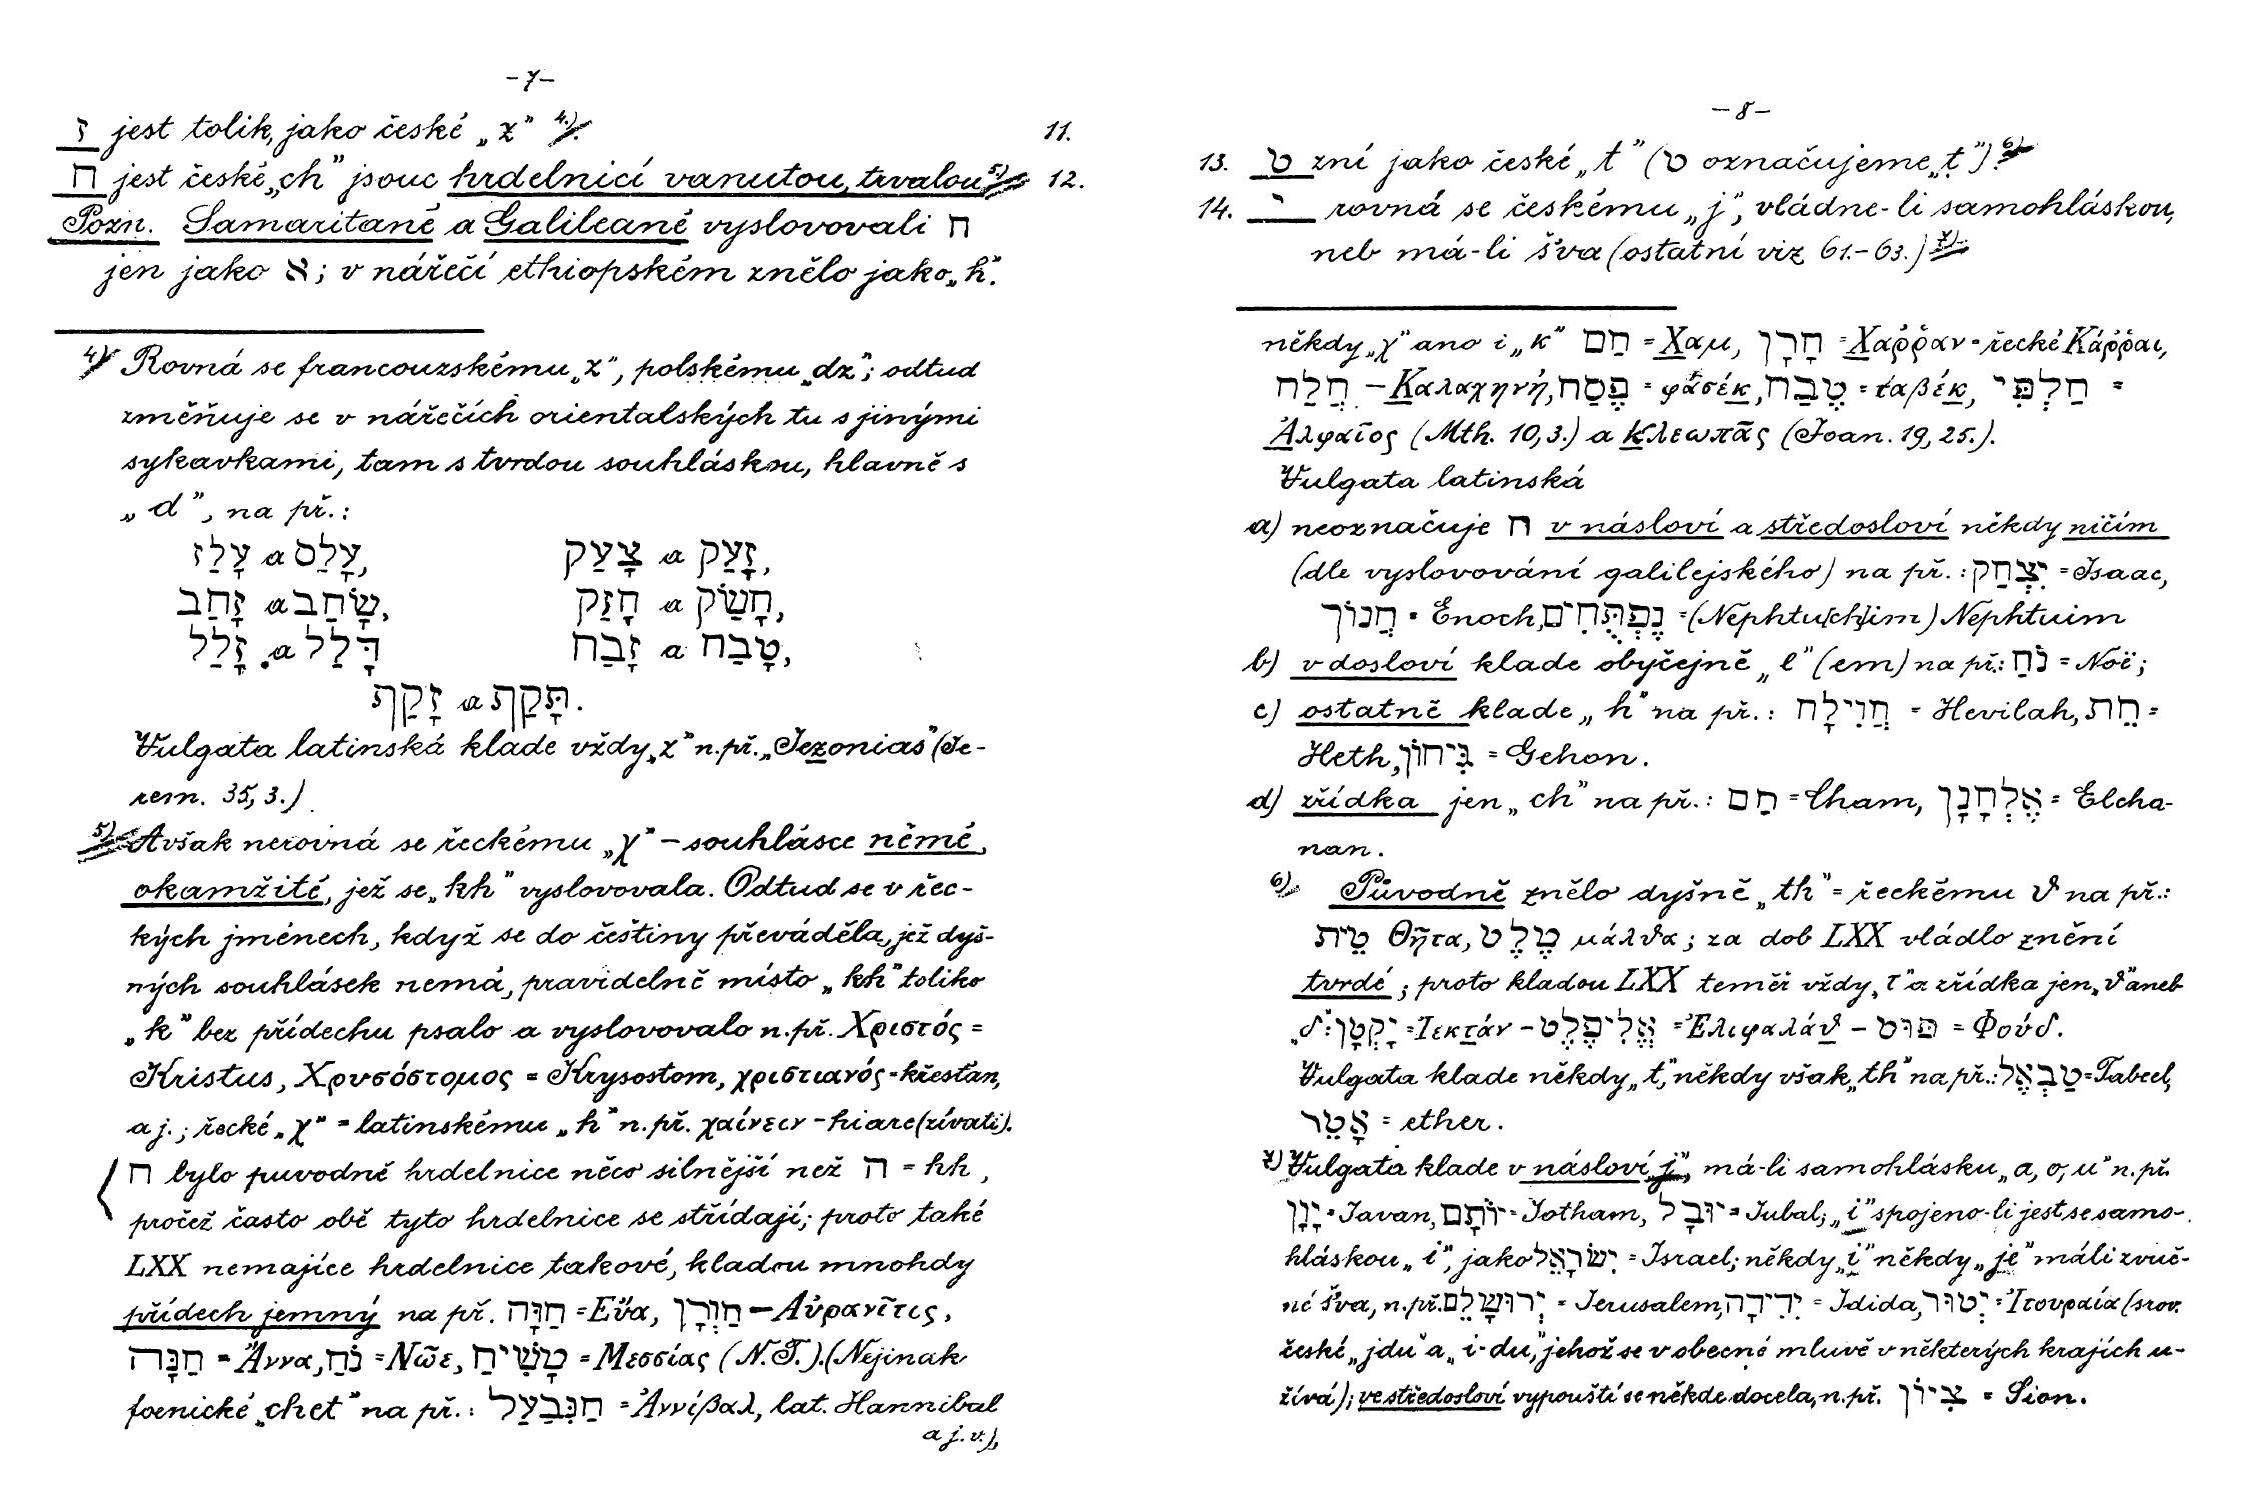 -7-
ז jest tolik, jako české „z" 4.) 11.
ח jest české „ch" jsouc hrdelnicí vanutou, trvalou 5.) 12.
Pozn. Samaritané a Galileané vyslovovali ח
jen jako א; v nářečí ethiopském znělo jako „h".
4.) Rovná se francouzskému „z", polskému „dz"; odtud
změňuje se v nářečích orientalských tu s jinými
sykavkami, tam s tvrdou souhláskou, hlavně s
„d", na př.:
עָלַז a עָלַס, צָעַק a זָעַק,
זָחַב a שָׂחַב, חָזַק a חָשַׂק,
זָלַל a דָּלַל זָבַח a טָבַח,
זָקַף a תָּקַף.
Vulgata latinská klade vždy „z" n. př. „Jezonias" (Je-
rem. 35, 3.)
5.) Avšak nerovná se řeckému „χ" – souhlásce němé,
okamžité, jež se „kh" vyslovovala. Odtud se v řec-
kých jménech, když se do češtiny převáděla, jež dyš-
ných souhlásek nemá, pravidelně místo „kh" toliko
„k" bez přídechu psalo a vyslovovalo n. př. Χριστός =
Kristus, Χρυσόστομος = Krysostom, χριστιανός = křesťan,
a j.; řecké „χ" = latinskému „h" n. př. χαίνειν – hiare (zívati).
ח bylo puvodně hrdelnice něco silnější než ה = hh,
pročež často obě tyto hrdelnice se střídají; proto také
LXX nemajíce hrdelnice takové, kladou mnohdy
přídech jemný na př. חַוָּה = Εὔα, חַוְרָן – Αὐρανῖτις,
חַנָּה = Ἄννα, נֹחַ = Νῶε, מָשִׁיחַ = Μεσσίας (N. T.). (Nejinak
foenické „chet" na př.: חַנִּבַעַל = Ἀννίβαλ, lat. Hannibal
a j. v.),
-8-
13. ט zní jako české „t" (ט označujeme „ṭ") 6.)
14. י rovná se českému „j", vládne-li samohláskou,
neb má-li šva (ostatní viz 61.–63.) 7.)
někdy „χ" ano i „κ" חַם = Χαμ, חָרָן = Χαῤῥαν = řecké Κάῤῥαι,
חֲלַח – Καλαχηνή, פֶּסַח = φασέκ, טֶבַח = ταβέκ, חַלְפִּי =
Ἀλφαῖος (Mth. 10, 3.) a Κλεωπᾶς (Joan. 19, 25.).
Vulgata latinská
a) neoznačuje ח v násloví a středosloví někdy ničím
(dle vyslovování galilejského) na př.: יִצְחַק = Isaac,
חֲנוֹךְ = Enoch, נֶפְתֻּחִים = (Nephtu[ch]im) Nephtuim
b) v dosloví klade obyčejně „e" (em) na př.: נֹחַ = Noë;
c) ostatně klade „h" na př.: חֲוִילָה = Hevilah, חֵת =
Heth, גִּיחוֹן = Gehon.
d) zřídka jen „ch" na př.: חַם = Cham, אֶלְחָנָן = Elcha-
nan.
6.) Původně znělo dyšně „th" = řeckému ϑ na př.:
טֵית Θῆτα, מֶלֶט μάλϑα; za dob LXX vládlo znění
tvrdé; proto kladou LXX teměř vždy „τ" a zřídka jen „ϑ" aneb
„δ": יָקְטָן = Ἰεκτάν – אֱלִיפֶלֶט = Ἐλιφαλάϑ – פּוּט = Φούδ.
Vulgata klade někdy „t", někdy však „th" na př.: טָבְאֶל = Tabeel,
אָטֵר = ether.
7.) Vulgata klade v násloví „j", má-li samohlásku „a, o, u" n. př.
יָוָן = Javan, יוֹתָם = Jotham, יוּבָל = Jubal; „i" spojeno-li jest se samo-
hláskou „i", jako יִשׂרָאֵל = Israel; někdy „i" někdy „je" máli zvuč-
né šva, n. př. יְרוּשָׁלֵם = Jerusalem, יְדִידָה = Idida, יְטוּר = Ἰτουραία (srov.
české „jdu" a „i-du", jehož se v obecné mluvě v některých krajích u-
žívá); ve středosloví vypouští se někde docela, n. př. צִיּוֹן = Sion.